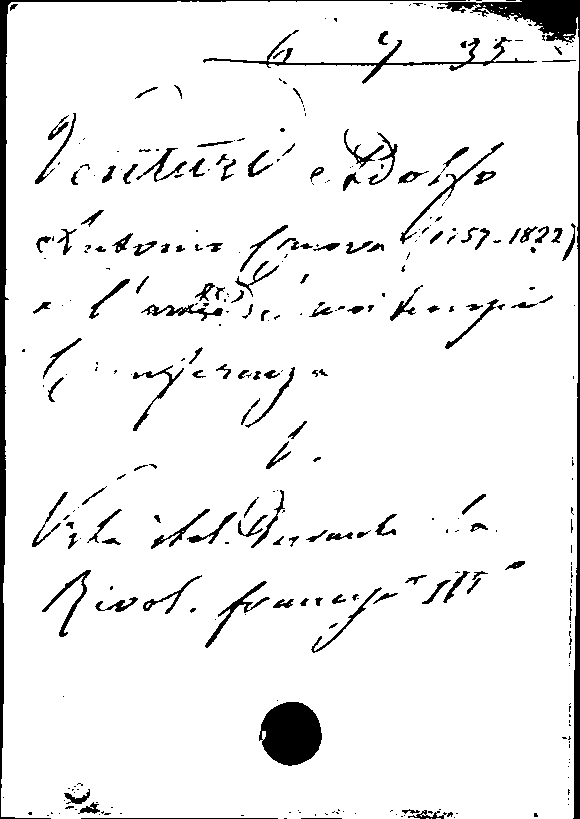 6 7 35
Venturi Adolfo
Antonio Canova (1757-1822)
e l'arte de' suoi tempi
Conferenza
V.
Vita ital. Durante la
Rivol. francese III°